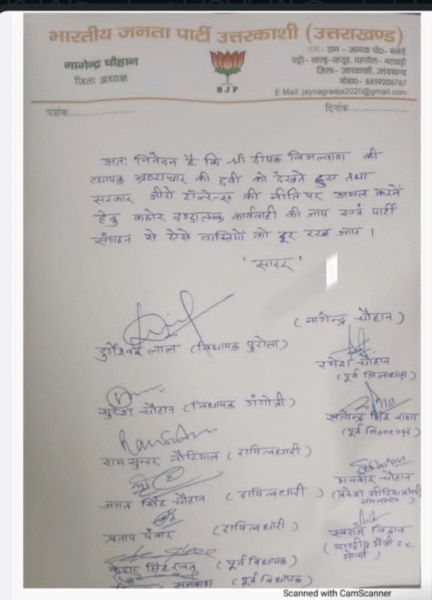 भारतीय जनता पार्टी उत्तरकाशी (उत्तराखण्ड)
नागेन्द्र चौहान
जिला अध्यक्ष
BJP
ग्राम - जामक पो0- मनेरी
पट्टी- बाड़ा-कठूड़, तहसील- भटवाड़ी
जिला- उत्तरकाशी, उत्तराखण्ड
मोबा0- 6859206767
E Mail: jaynagraaja2020@gmail.com
पत्रांक
दिनांक
अतः निवेदन है कि श्री दीपक बिजल्वाण की
व्यापक भ्रष्टाचार की छवी को देखते हुए तथा
सरकार जीरो टॉलरेन्स की नीति पर अमल करने
हेतु कठोर दण्डात्मक कार्यवाही की जाय एवं पार्टी
संगठन से ऐसे व्यक्तियों को दूर रखा जाय ।
'सादर'
(नागेन्द्र चौहान)
दुर्गेश्वर लाल (विधायक पुरोला)
रमेश चौहान
(पूर्व जि०अ०)
सुरेश चौहान (विधायक गंगोत्री)
सतेन्द्र सिंह राणा
(पूर्व जि०अ०)
राम सुन्दर नौटियाल (दायित्वधारी)
जगत सिंह चौहान (दायित्वधारी)
मनवीर चौहान
(प्रदेश मीडिया प्रभारी)
प्रताप पंवार (दायित्वधारी)
स्वराज विद्वान
(राष्ट्रीय मंत्री SC
मोर्चा)
केदार सिंह रावत (पूर्व विधायक)
(पूर्व विधायक)
Scanned with CamScanner